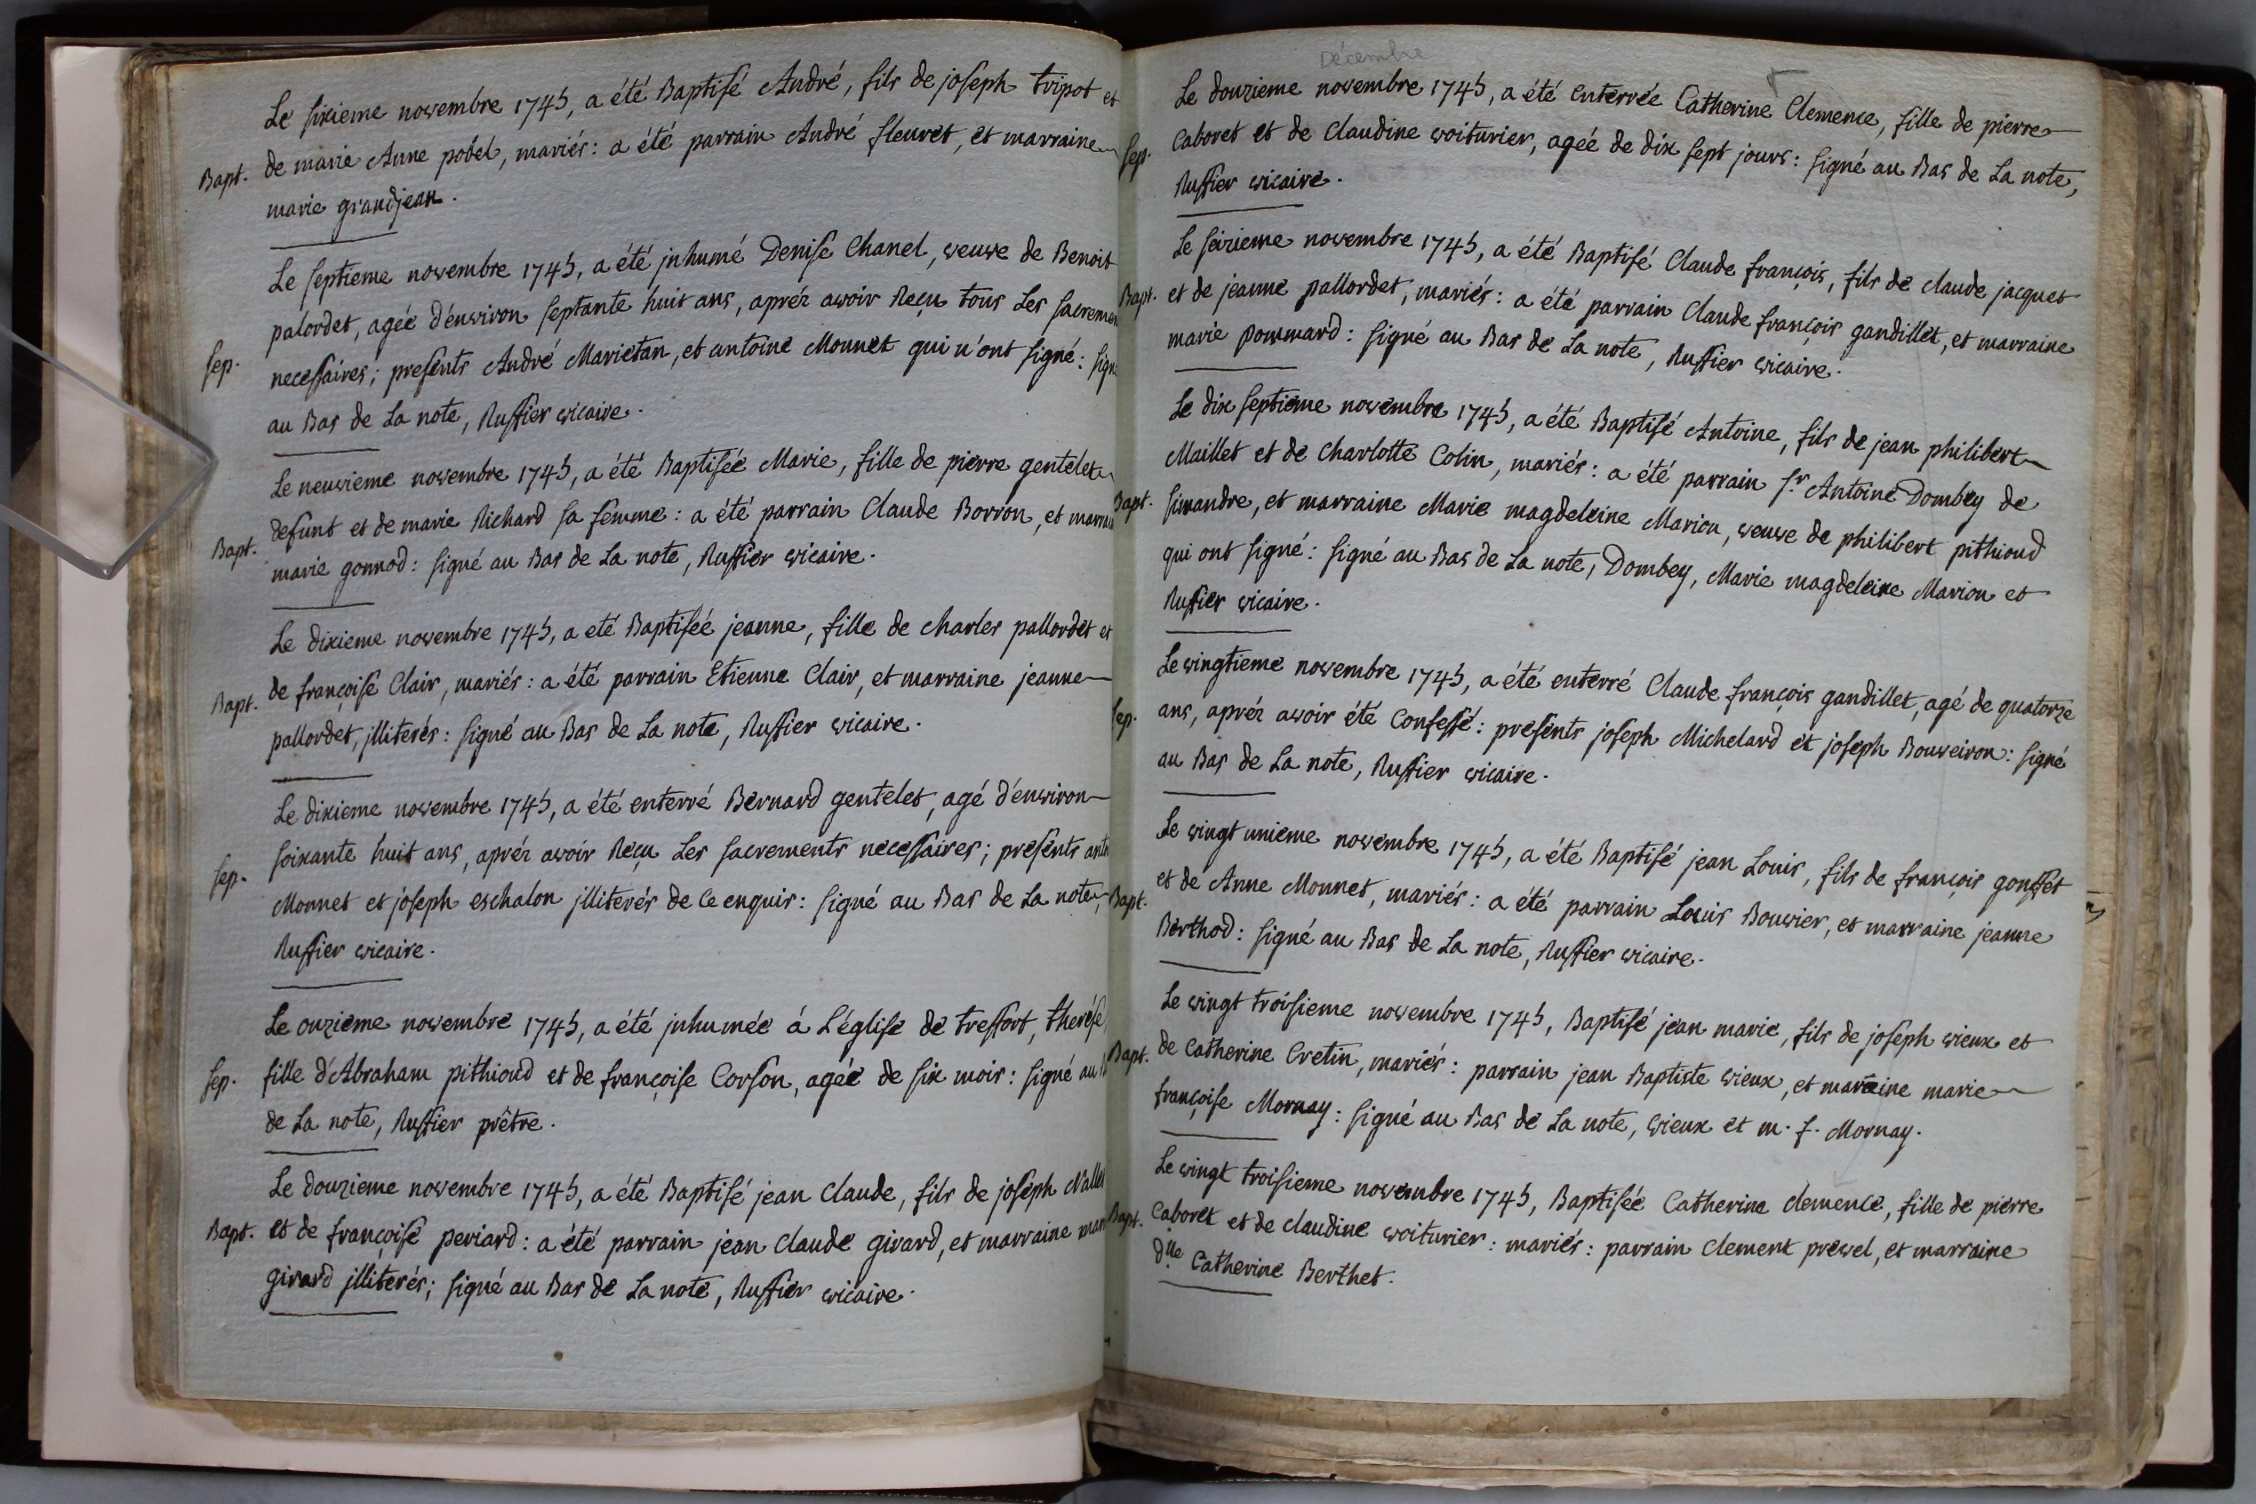 Le sixieme novembre 1745, a été Baptisé André, fils de joseph tripot et
Bapt. de marie Anne pobel, mariés: a été parrain André fleuret, et marraine
marie grandjean.
Le septieme novembre 1745, a été jnhumé Denise Chanel, veuve de Benoit
palordet, agée d'environ septante huit ans, aprés avoir Reçu tous Les sacremen
Sep. necessaires; presents André Marietan, et antoine Monnet qui n'ont signé: sign
au Bas de La note, Ruffier vicaire.
Le neuvieme novembre 1745, a été Baptiséé Marie, fille de pierre gentelet
Bapt. defunt et de marie Richard sa femme: a été parrain Claude Borron, et marrai
marie gonnod: signé au Bas de La note, Ruffier vicaire.
Le dixieme novembre 1745, a eté Baptiséé jeanne, fille de charles pallordet et
Bapt. de françoise Clair, mariés: a été parrain Etienne Clair, et marraine jeanne
pallordet, jlliterés: signé au Bas de La note, Ruffier vicaire.
Le dixieme novembre 1745, a été enterré Bernard gentelet, agé d'environ
Sep. soixante huit ans, aprés avoir Reçu Les sacrements necessaires; presents anto
Monnet et joseph eschalon jlliterés de ce enquis: signé au Bas de La note,
Ruffier vicaire.
Le onzieme novembre 1745, a été jnhumée á L'église de treffort, therése
Sep. fille d'Abraham pithioud et de françoise Corson, agée de six mois: signé au B
de La note, Ruffier prêtre.
Le douzieme novembre 1745, a été Baptisé jean claude, fils de joseph Nallet
Bapt. et de françoise periard: a été parrain jean claude girard, et marraine mari
girard jlliterés; signé au Bas de La note, Ruffier vicaire.
Décembre
Le douzieme novembre 1745, a été enterrée Catherine Clemence, fille de pierre
Sep. Caboret et de Claudine voiturier, agéé de dix sept jours: signé au Bas de La note,
Ruffier vicaire.
Le seizieme novembre 1745, a été Baptisé Claude françois, fils de claude jacquet
Bapt. et de jeanne pallordet, mariés: a été parrain Claude françois gandillet, et marraine
marie pommard: signé au Bas de La note, Ruffier vicaire.
Le dix septieme novembre 1745, a été Baptisé Antoine, fils de jean philibert
Maillet et de Charlotte Colin, mariés: a été parrain sr. Antoine Dombey de
Bapt. simandre, et marraine Marie magdeleine Marion, veuve de philibert pithioud
qui ont signé: signé au Bas de La note, Dombey, Marie magdeleine Marion et
Ruffier vicaire.
Le vingtieme novembre 1745, a été enterré Claude françois gandillet, agé de quatorze
Sep. ans, aprés avoir été Confessé: presents joseph Michelard et joseph Bouveiron: signé
au Bas de La note, Ruffier vicaire.
Le vingt unieme novembre 1745, a été Baptisé jean Louis, fils de françois gonffet
Bapt. et de Anne Monnet, mariés: a été parrain Louis Bouvier, et marraine jeanne
Berthod: signé au Bas de La note, Ruffier vicaire.
Le vingt troisieme novembre 1745, Baptisé jean marie, fils de joseph vieux et
Bapt. de Catherine Cretin, mariés: parrain jean Baptiste vieux, et marraine marie
françoise Mornay: signé au Bas de La note, vieux et m. f. Mornay.
Le vingt troisieme novembre 1745, Baptisée Catherine clemence, fille de pierre
Bapt. Caboret et de claudine voiturier: mariés: parrain Clement prevel, et marraine
dlle. Catherine Berthet.